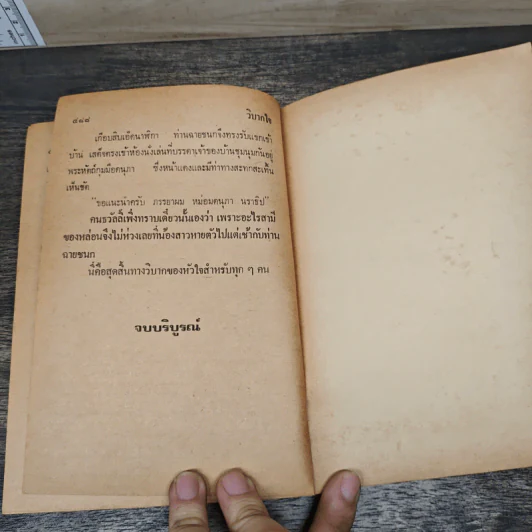 ๔๑๘ วิบากใจ
เกือบสิบเอ็ดนาฬิกา ท่านฉายชนกจึงทรงรับแขกเข้า
บ้าน เสด็จตรงเข้าห้องนั่งเล่นที่บรรดาเจ้าของบ้านชุมนุมกันอยู่
พระหัตถ์กุมมือคนุภา ซึ่งหน้าแดงและมีท่าทางสะทกสะเทิ้น
เห็นชัด
"ขอแนะนำครับ ภรรยาผม หม่อมคนุภา นราธิป"
คนธวัลลิ์เพิ่งทราบเดี๋ยวนั้นเองว่า เพราะอะไรสามี
ของหล่อนจึงไม่ห่วงเลยที่น้องสาวหายตัวไปแต่เช้ากับท่าน
ฉายชนก
นี่คือสุดสิ้นทางวิบากของหัวใจสำหรับทุก ๆ คน
จบบริบูรณ์